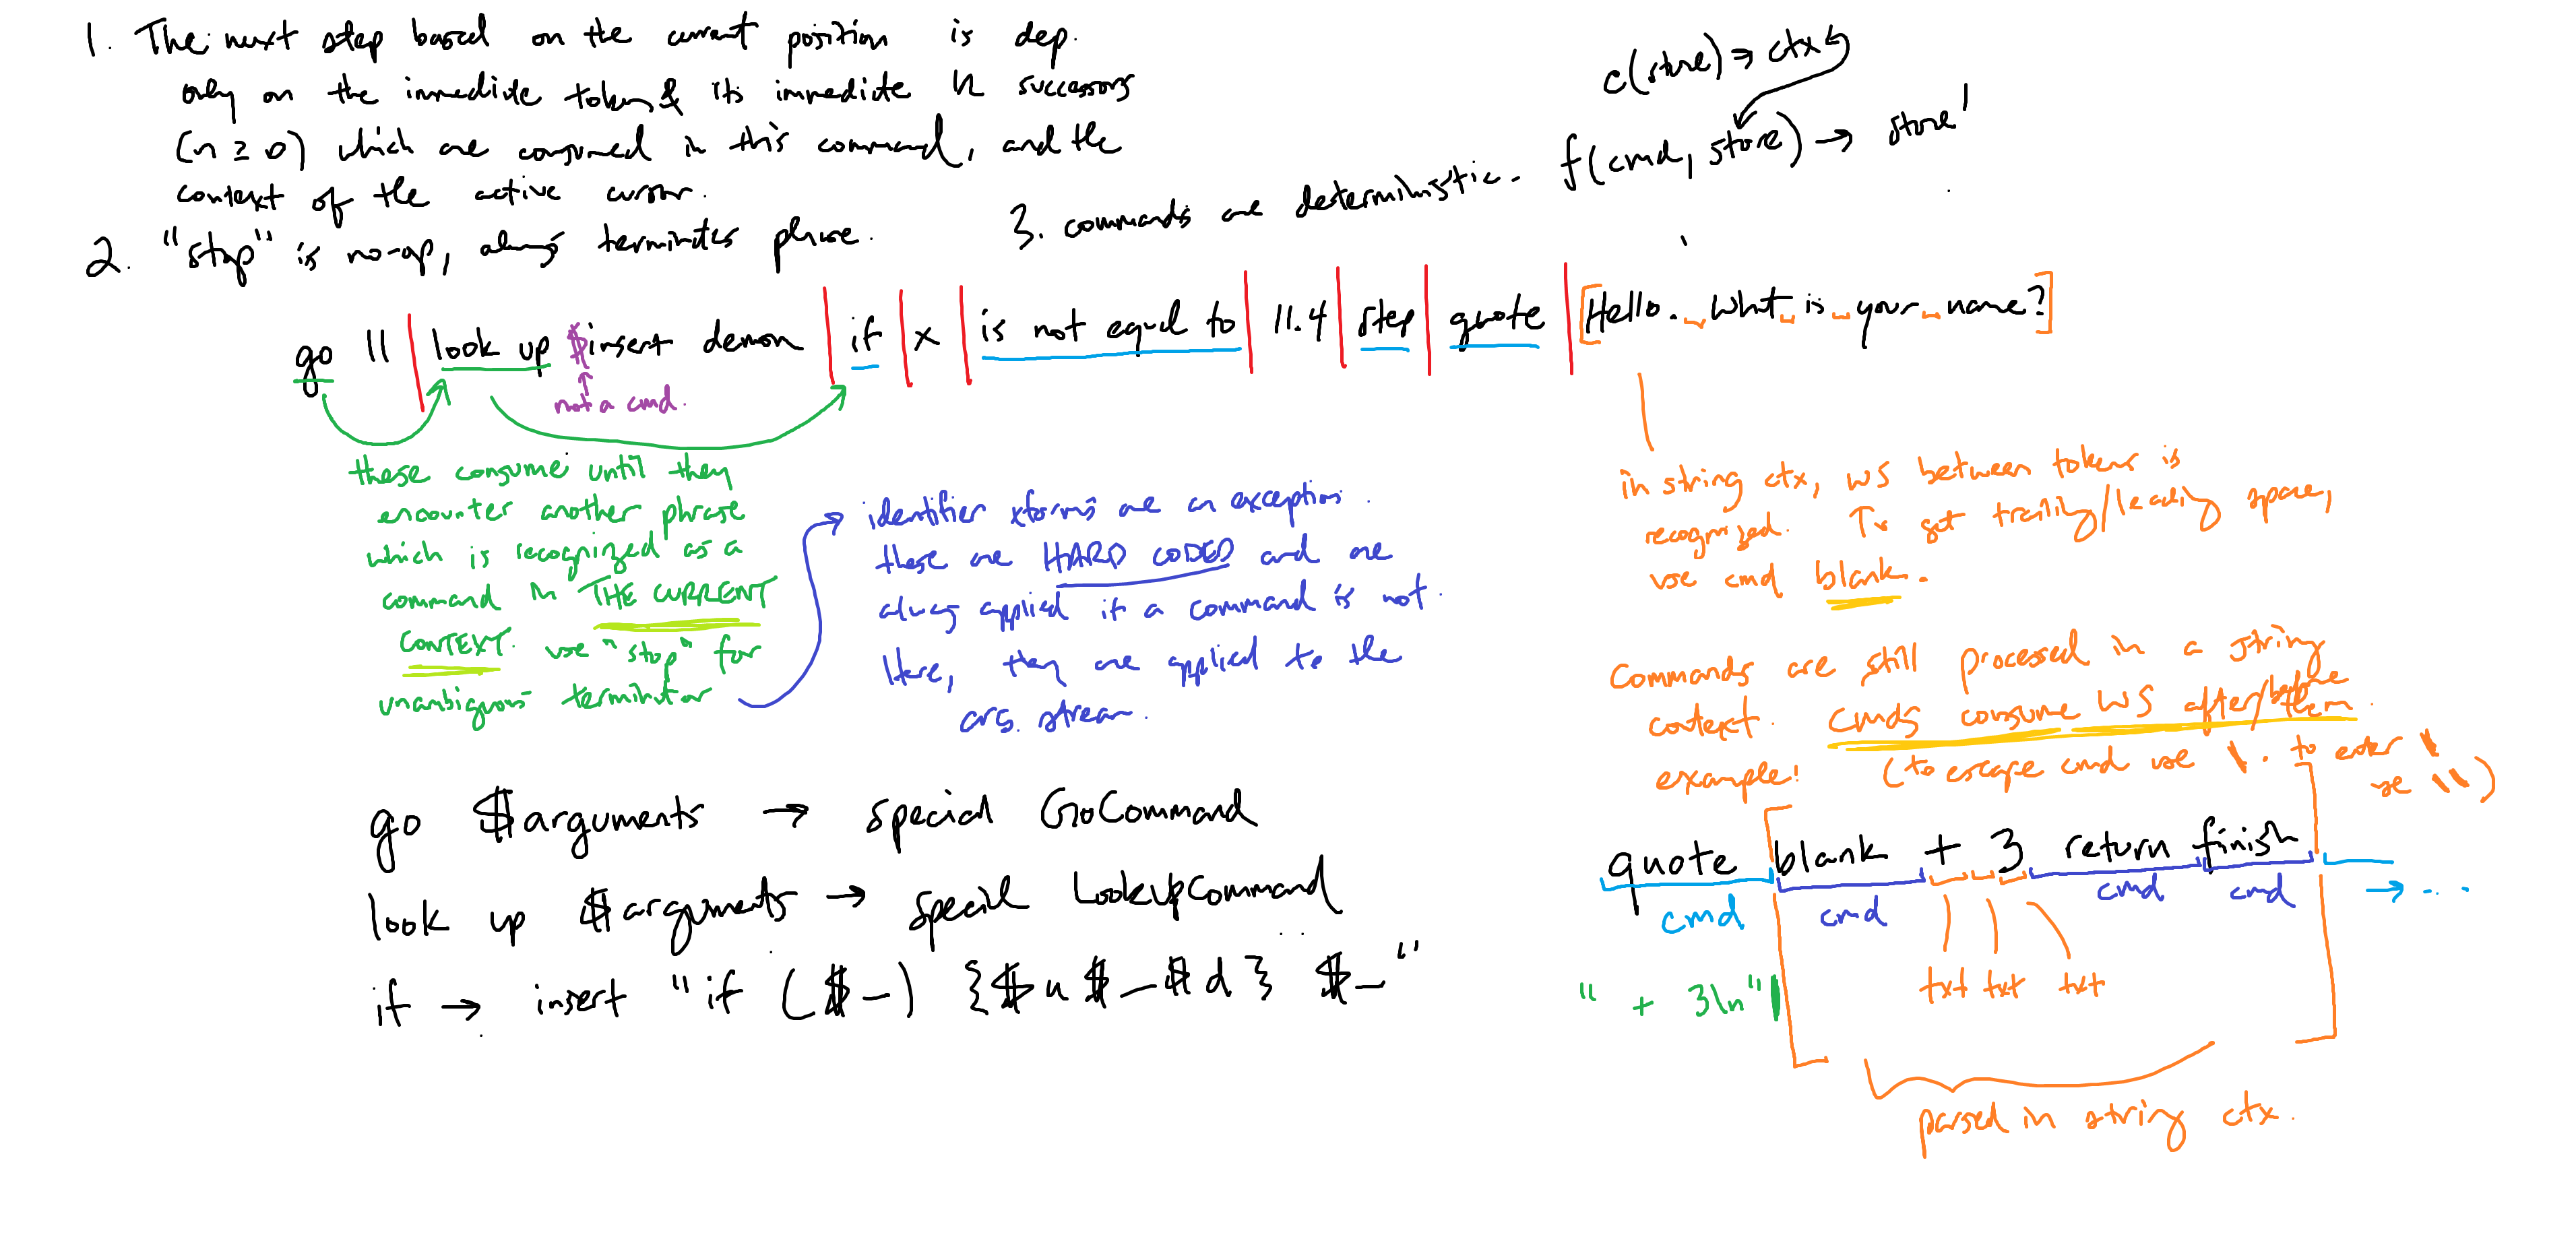 1. The next step based on the current position is dep.
only on the immediate token & its immediate n successors
(n ≥ 0) which are consumed in this command, and the
context of the active cursor.
2. "stop" is no-op, always terminates phrase.
3. commands are deterministic. f(cmd, store) → store'
c(store) → ctx
go 11 | look up $insert demon | if | x | is not equal to | 11.4 | step | quote | [Hello. What is your name?]
not a cmd.
these consume until they
encounter another phrase
which is recognized as a
command in THE CURRENT
CONTEXT. use "stop" for
unambiguous terminator
identifier xforms are an exception.
these are HARD CODED and are
always applied if a command is not.
Here, they are applied to the
arg. stream.
in string ctx, WS between tokens is
recognized. To get trailing/leading space,
use cmd blank.
Commands are still processed in a string
context. cmds consume WS after/before them.
example: (to escape cmd use \. to enter \
use \\)
go $arguments → special GoCommand
look up $arguments → special LookupCommand
if → insert "if ($_) {$u$_$d} $_"
quote blank + 3 return finish
cmd cmd cmd cmd → ...
txt txt txt
" + 3\n"|
parsed in string ctx.